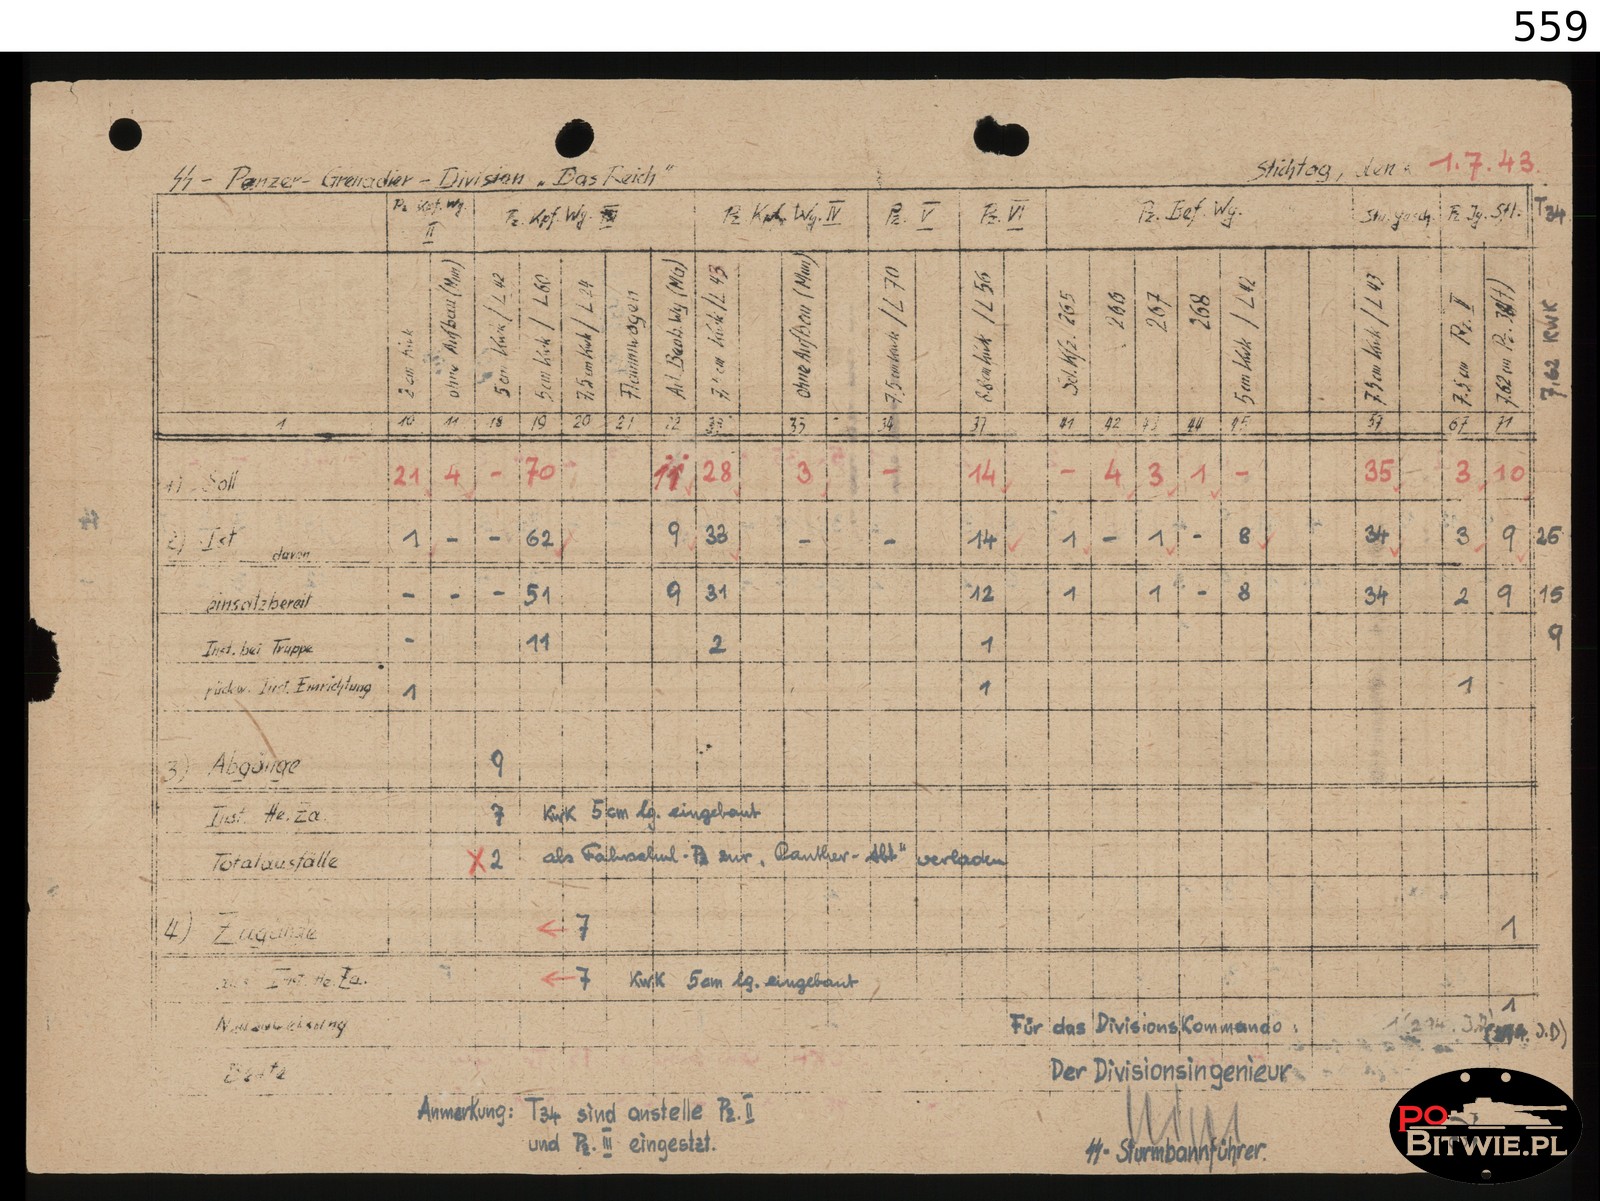 559
SS - Panzer-Grenadier-Division „Das Reich"
Stichtag, den 1.7.43.
Pz. Kpf. Wg. II
Pz. Kpf. Wg. III
Pz. Kpf. Wg. IV
Pz. V
Pz. VI
Pz. Bef. Wg.
Stu. gesch.
Pz. Jg. Sfl.
T34
2 cm Kwk
ohne Aufbau (Mun)
5 cm Kwk / L 42
5 cm Kwk / L 60
7,5 cm Kwk / L 24
Flammwagen
Art. Beob. Wg (MG)
7,5 cm Kwk / L 43
ohne Aufbau (Mun)
7,5 cm Kwk / L 70
8,8 cm Kwk / L 56
Sd. Kfz. 265
266
267
268
5 cm Kwk / L 42
7,5 cm Kwk / L 43
7,5 cm Pz. II
7,62 cm Pz. 38(t)
7,62 KWK
1 10 11 18 19 20 21 22 33 34 37 41 42 43 44 45 57 67 71
1) Soll 21 4 - 70 11 28 3 - 14 - 4 3 1 - 35 3 10
2) Ist 1 - - 62 9 33 - - 14 1 - 1 - 8 34 3 9 26
davon
einsatzbereit - - - 51 9 31 12 1 1 - 8 34 2 9 15
Inst. bei Truppe - 11 2 1 9
rückw. Inst. Einrichtung 1 1 1
3) Abgänge 9
Inst. He. Za. 7 KwK 5 cm lg. eingebaut
Totalausfälle X 2 als Fahrschul-Pz zur „Panther-Abt" verladen
4) Zugänge ← 7 1
aus Inst. He. Za. ← 7 KwK 5 cm lg. eingebaut
Neuzuweisung 1
Für das DivisionsKommando: 1 (294. J.D) J.D)
Beute
Der Divisionsingenieur
Anmerkung: T34 sind anstelle Pz. II
und Pz. III eingestzt.
SS-Sturmbannführer.
PO
BITWIE.PL